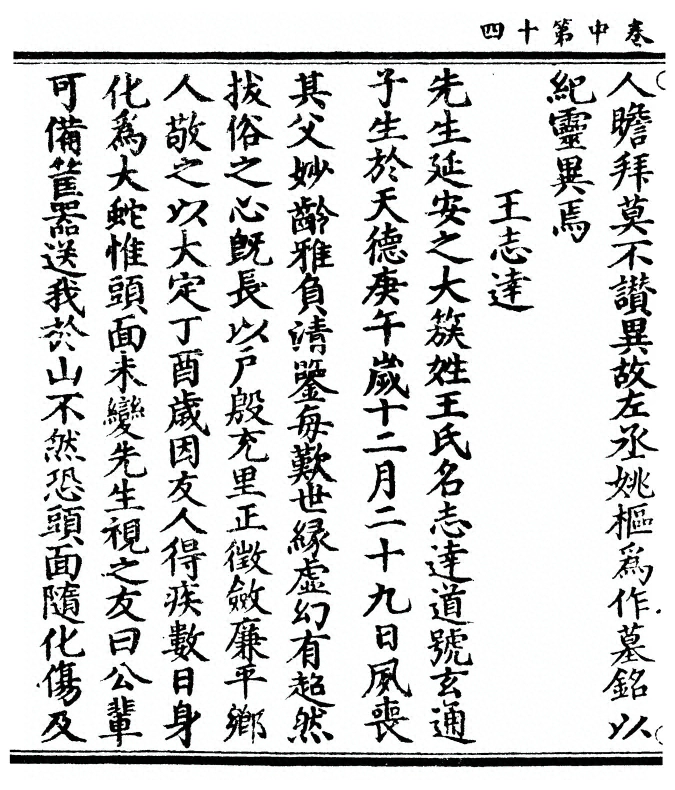 卷中第十四
人瞻拜莫不讃異故左丞姚樞爲作墓銘以
紀靈異焉
王志達
先生延安之大簇姓王氏名志達道號玄通
子生於天德庚午嵗十二月二十九日夙喪
其父妙齡雅負清鑒每歎世緣虛幻有超然
拔俗之心旣長以户殷充里正徵斂廉平鄉
人敬之以大定丁酉歲因友人得疾數日身
化爲大蛇惟頭面未變先生視之友曰公輩
可備筐器送我於山不然恐頭面隨化傷及